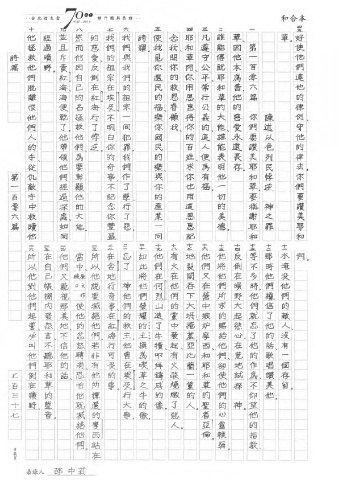 和合本
好使他們遵他的律例守他的律法你們要讚美耶和
華
陳述以色列民悖逆 神之罪
第一百零六篇 你們要讚美耶和華要稱謝耶和
華因他本為善他的慈愛永遠長存
誰能傳說耶和華的大能誰能表明他一切的美德
凡遵守公平常行公義的這人便為有福
耶和華阿你用恩惠待你的百姓求你也用這恩惠記
念我開你的救恩眷顧我
使我見你選民的福樂你國民的樂與你的產業一同
誇耀
我們與我們的祖宗一同犯罪我們作了孽行了惡
我們的祖宗在埃及不明白你的奇事不記念你豐盛
的慈愛反倒在紅海行了悖逆
然而他因自己的名拯救他們為要彰顯他的大能
並且斥責紅海海便乾了他帶領他們經過深處如同
經過曠野
拯救他們脫離恨他們人的手從仇敵手中救贖他
們
水淹沒他們的敵人沒有一個存留
那時他們纔信了他的話歌唱讚美他
等不多時他們就忘了他的作為不仰望他的指教
反倒在曠野大起慾心在荒地試探 神
他將他們所求的賜給他們卻使他們的心靈軟弱
他們又在營中嫉妒摩西和耶和華的聖者亞倫
地裂開吞下大坍掩蓋亞比蘭一黨的人
有火在他們的黨中發起有火燄燒毀了惡人
他們在何烈山造了牛犢叩拜鑄成的像
如此將他們榮耀的主換為吃草之牛的像
忘了 神他們的救主他曾在埃及行大事
在含地行奇事在紅海行可畏的事
所以他說要滅絕他們若非有他所揀選的摩西站在
當中使他的忿怒轉消恐怕他就滅絕他們
他們又藐視那美地不信他的話
在自己帳棚內發怨言不聽耶和華的聲音
所以他對他們起誓必叫他們倒在曠野
詩篇
第一百零六篇